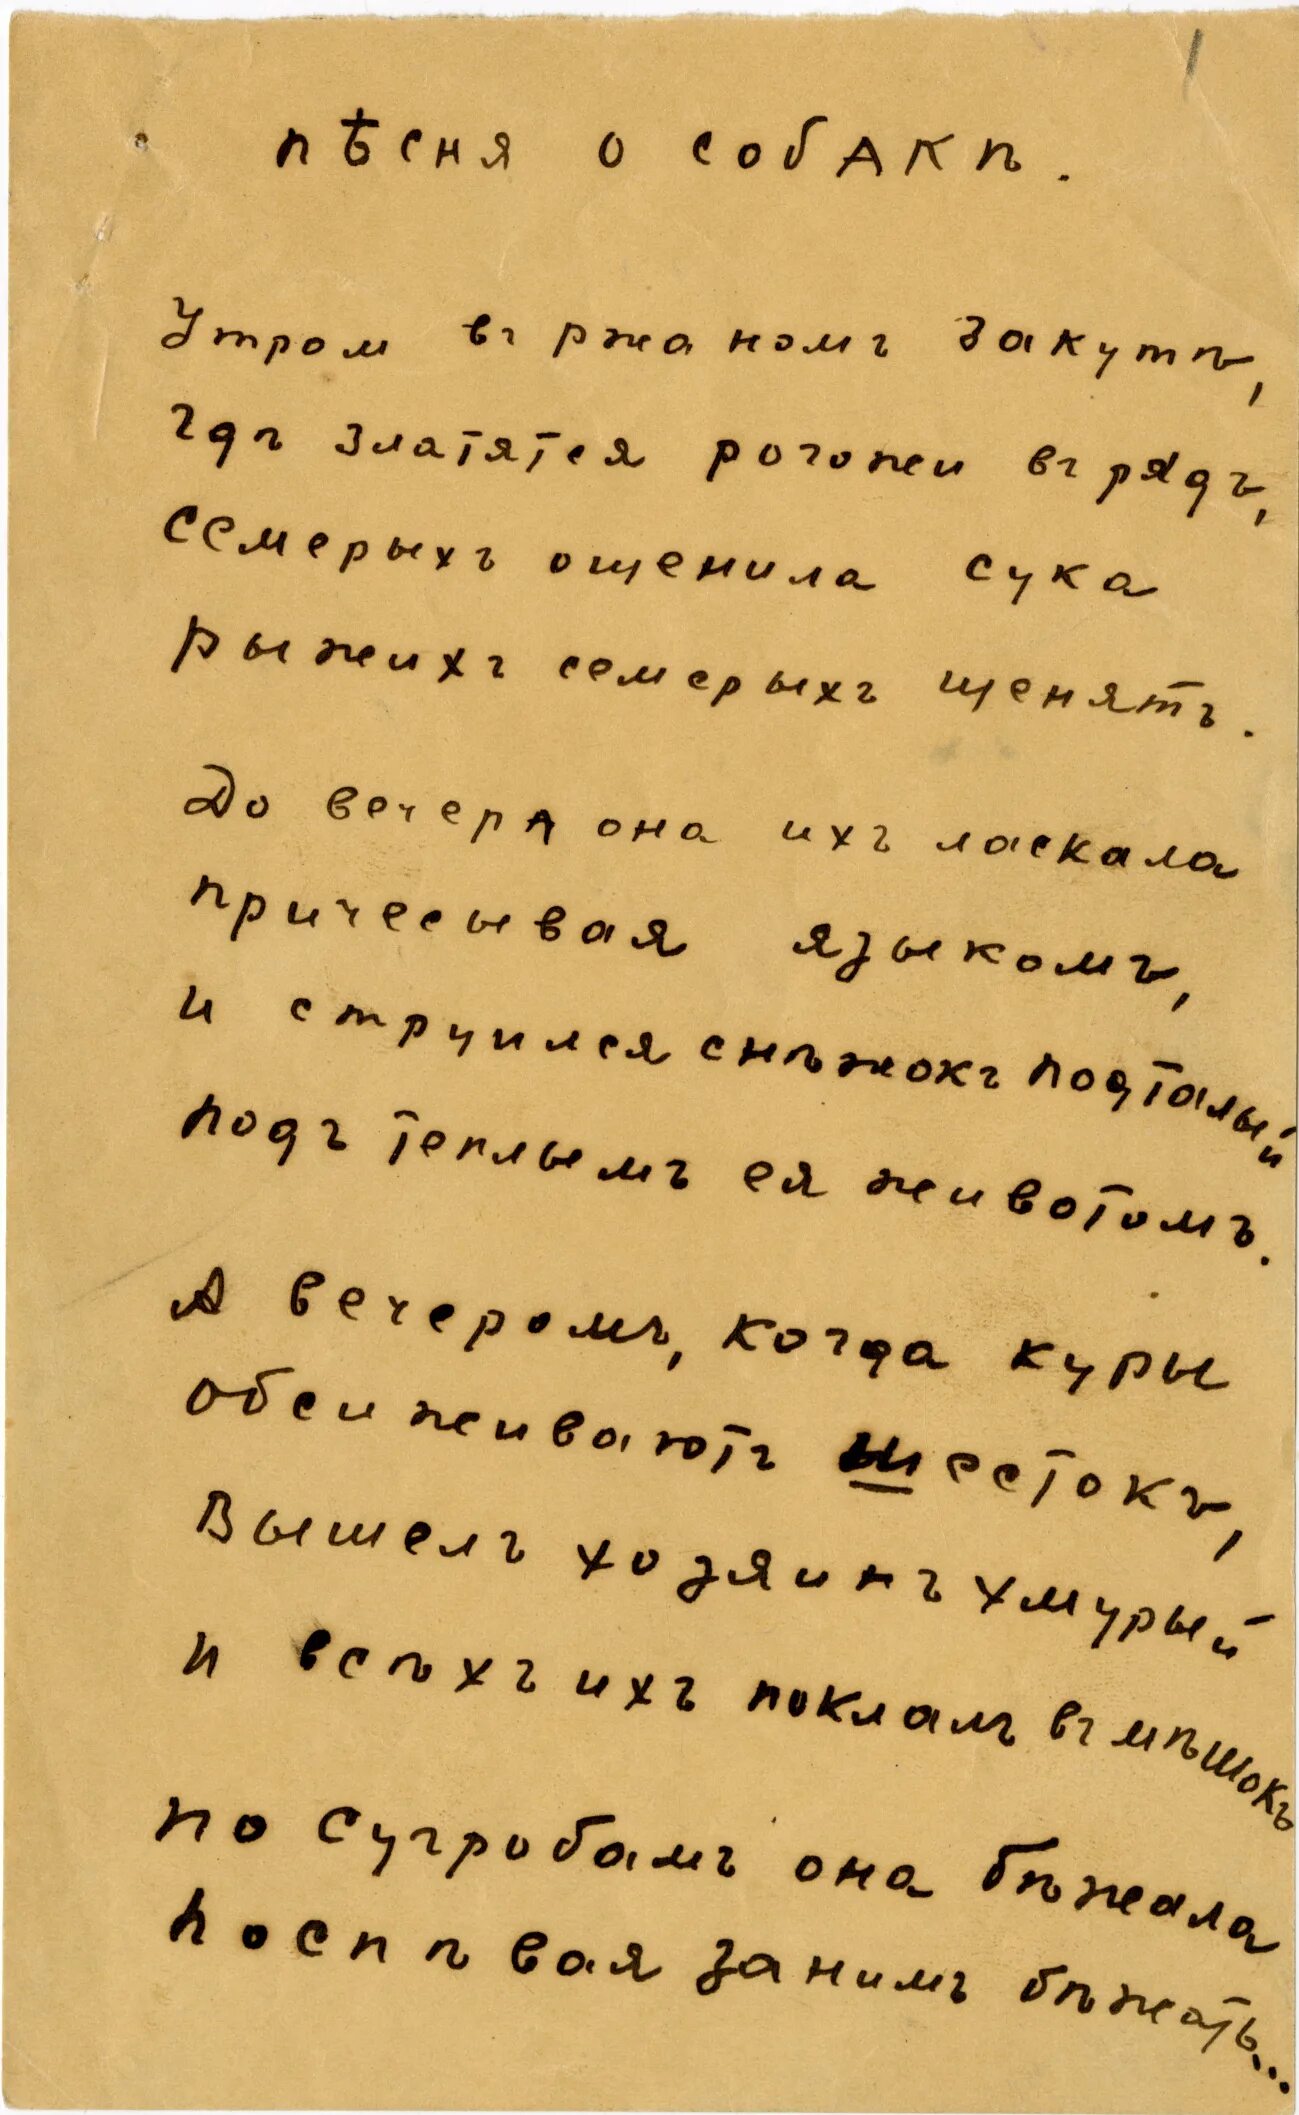 пѣсня о собакѣ.
Утром въ ржаномъ закутѣ,
гдѣ златятся рогожи въ рядъ,
Семерыхъ ощенила сука
рыжихъ семерыхъ щенятъ.
До вечера она ихъ ласкала
причесывая языкомъ,
и струился снѣжокъ подталый
подъ теплымъ ея животомъ.
А вечеромъ, когда куры
обсиживаютъ шестокъ,
Вышелъ хозяинъ хмурый
и всѣхъ ихъ поклалъ въ мѣшокъ
по сугробамъ она бѣжала
поспѣвая за нимъ бѣжать...